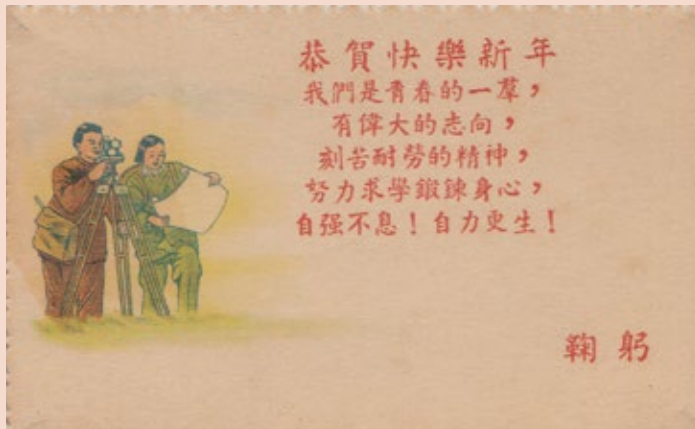 恭賀快樂新年
我們是青春的一羣，
有偉大的志向，
刻苦耐勞的精神，
努力求學鍛鍊身心，
自强不息！自力更生！
鞠躬